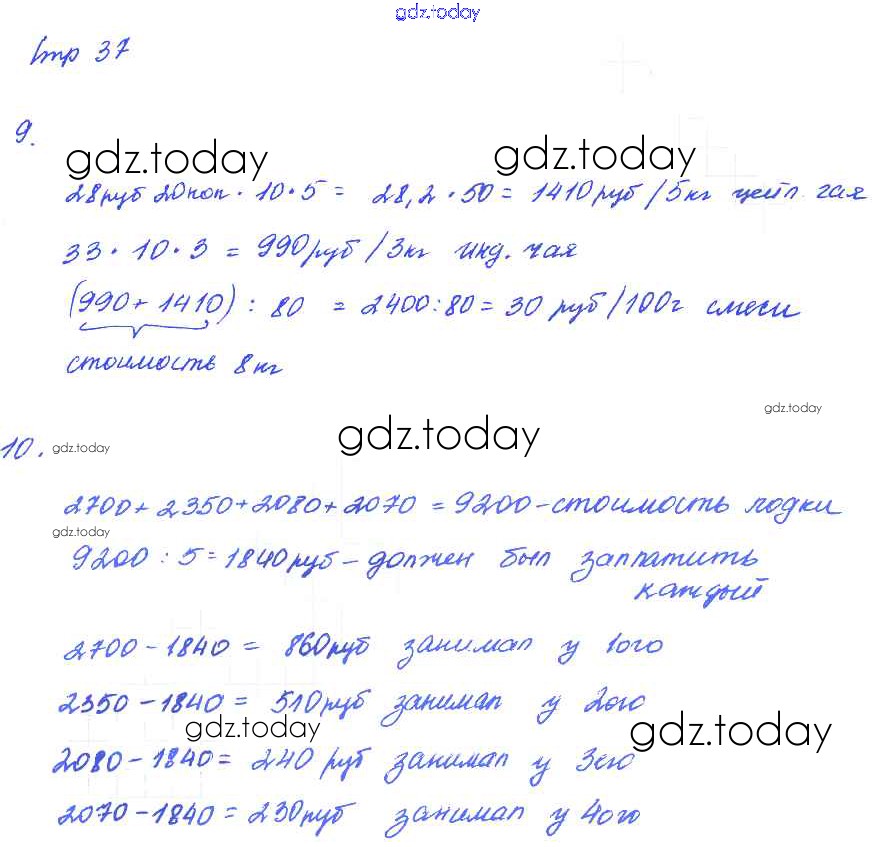 gdz.today
Стр 37
9.
gdz.today gdz.today
28руб 20коп · 10 · 5 = 28,2 · 50 = 1410руб /5кг цейл. чая
33 · 10 · 3 = 990руб /3кг инд. чая
(990 + 1410) : 80 = 2400:80 = 30 руб/100г смеси
стоимость 8кг
gdz.today
gdz.today
10. gdz.today
2700 + 2350 + 2080 + 2070 = 9200 - стоимость лодки
gdz.today
9200 : 5 = 1840руб - должен был заплатить
каждый
2700 - 1840 = 860руб занимал у 1ого
2350 - 1840 = 510руб занимал у 2ого
gdz.today gdz.today
2080 - 1840 = 240 руб занимал у 3его
2070 - 1840 = 230руб занимал у 4ого